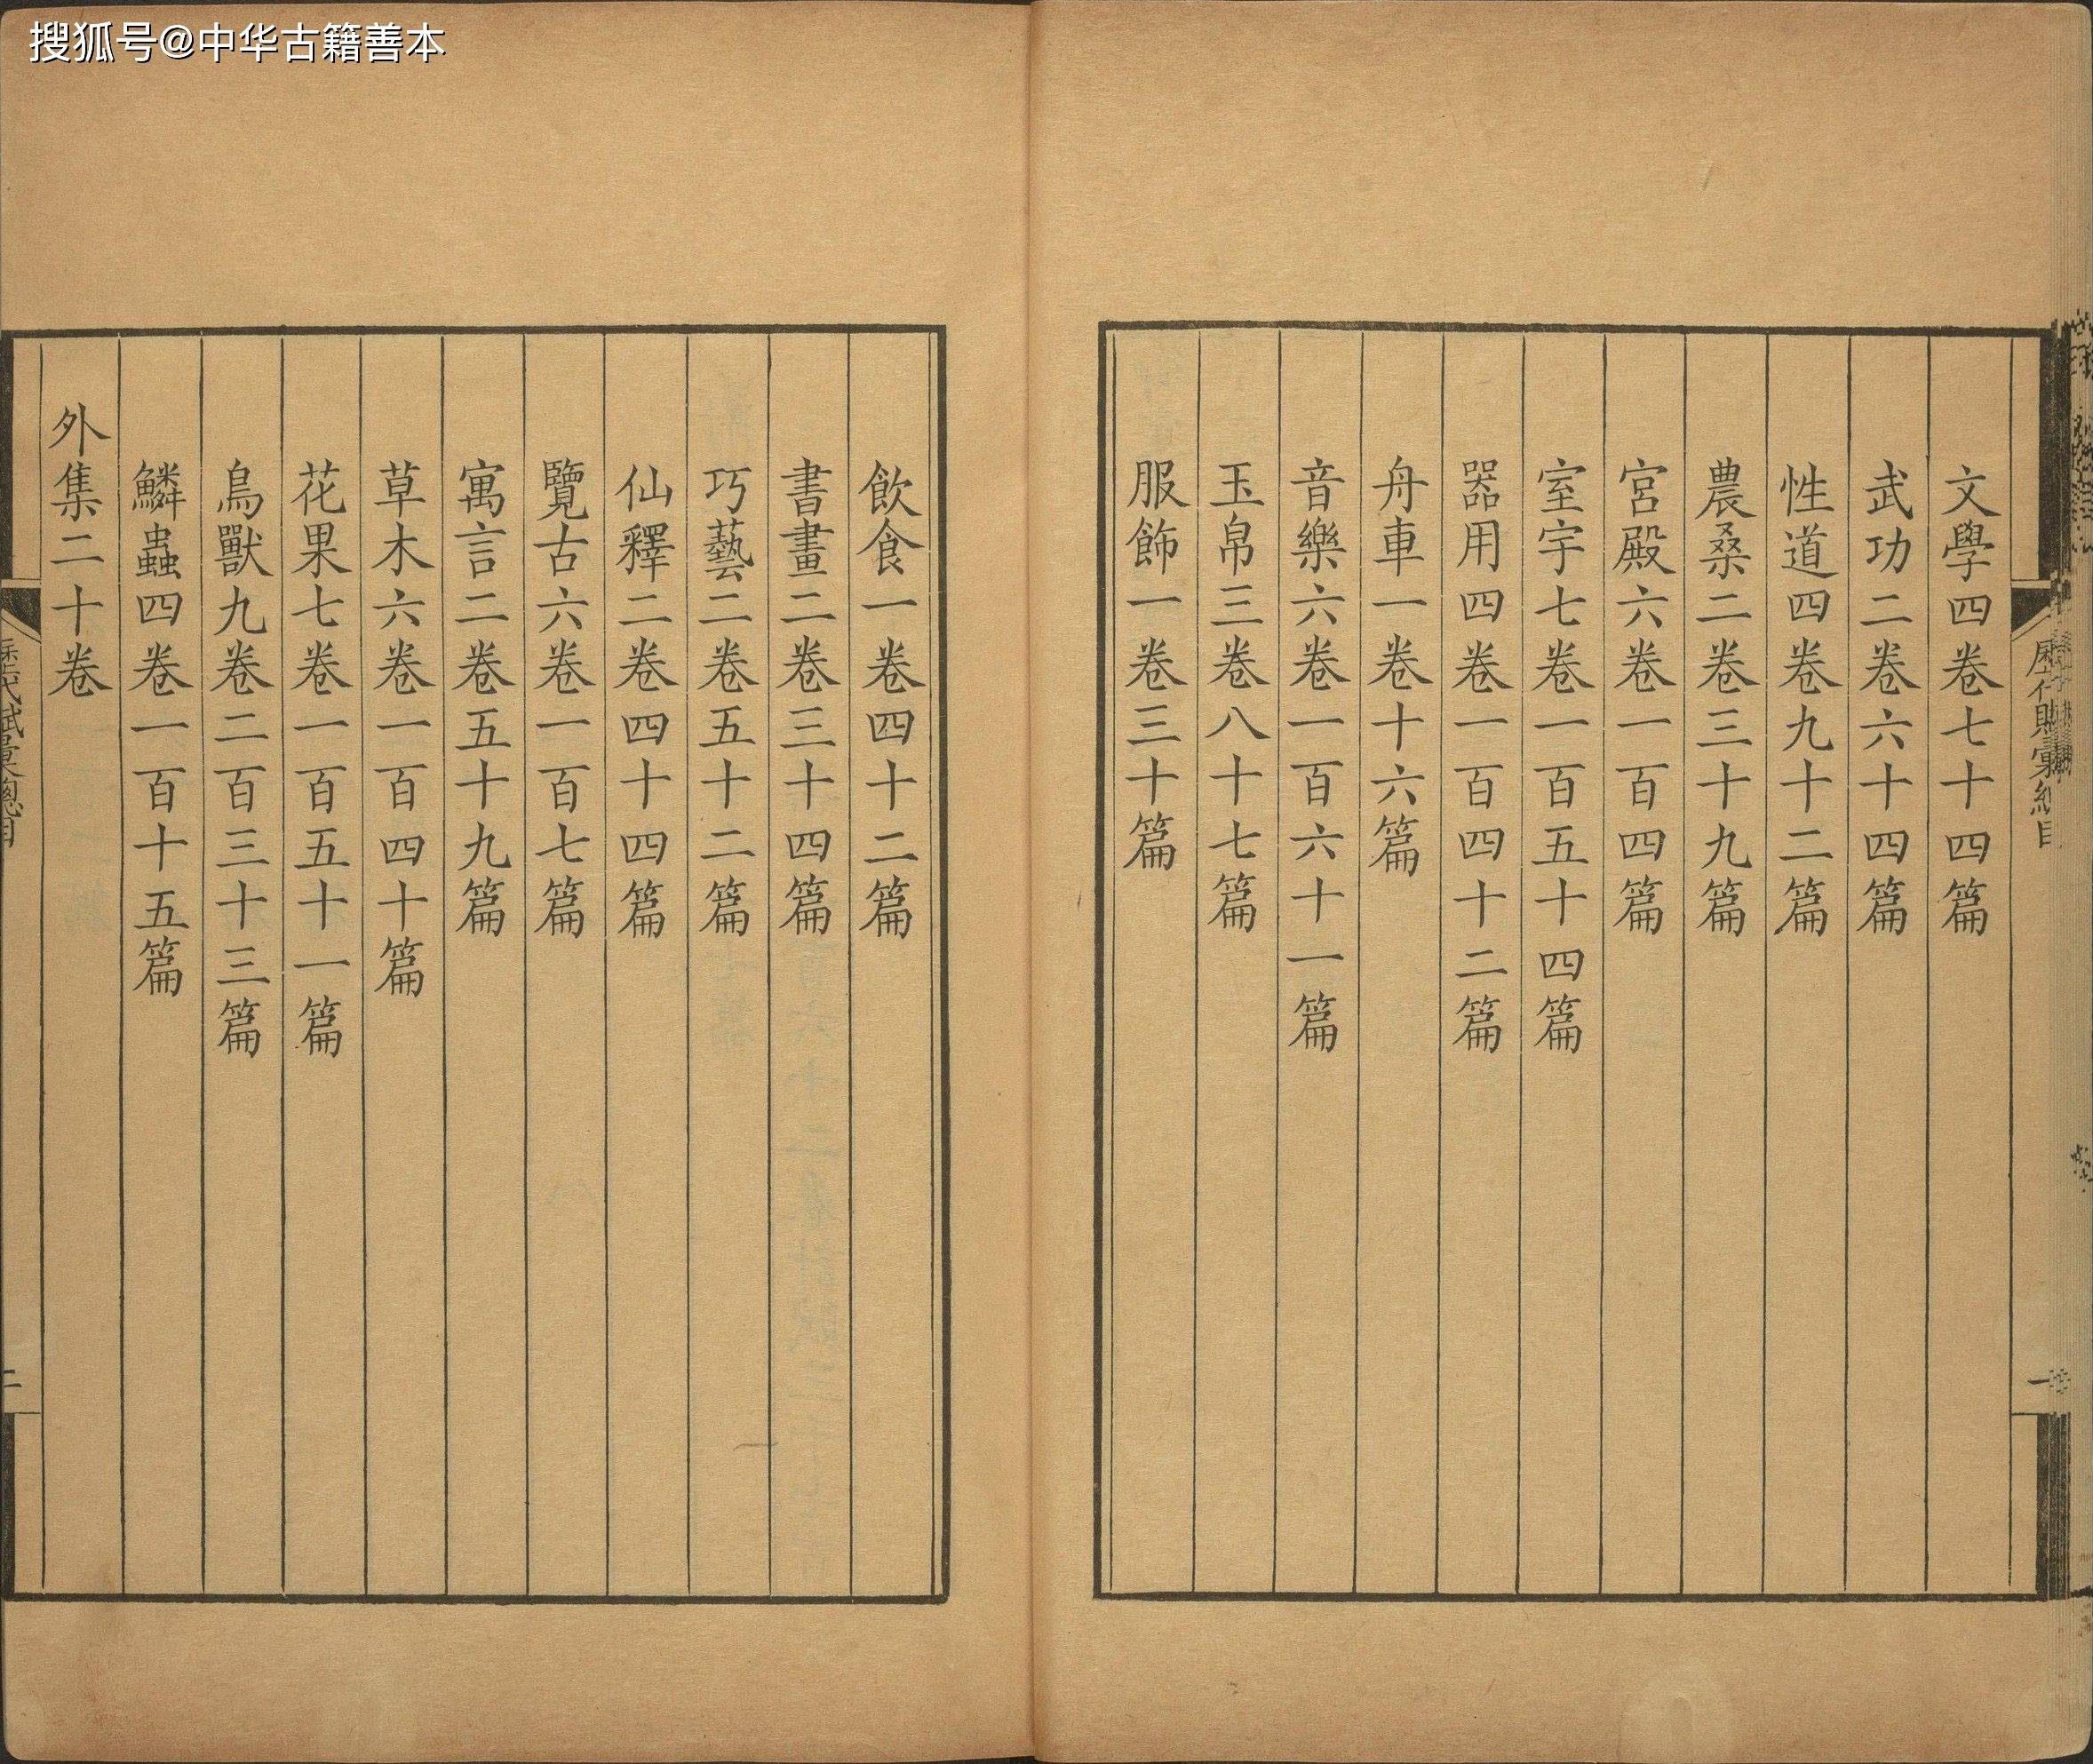 搜狐号@中华古籍善本
文學四卷七十四篇
武功二卷六十四篇
性道四卷九十二篇
農桑二卷三十九篇
宮殿六卷一百四篇
室宇七卷一百五十四篇
器用四卷一百四十二篇
舟車一卷十六篇
音樂六卷一百六十一篇
玉帛三卷八十七篇
服飾一卷三十篇
飲食一卷四十二篇
書畫二卷三十四篇
巧藝二卷五十二篇
仙釋二卷四十四篇
覽古六卷一百七篇
寓言二卷五十九篇
草木六卷一百四十篇
花果七卷一百五十一篇
鳥獸九卷二百三十三篇
鱗蟲四卷一百十五篇
外集二十卷
歷代賦彙總目
二